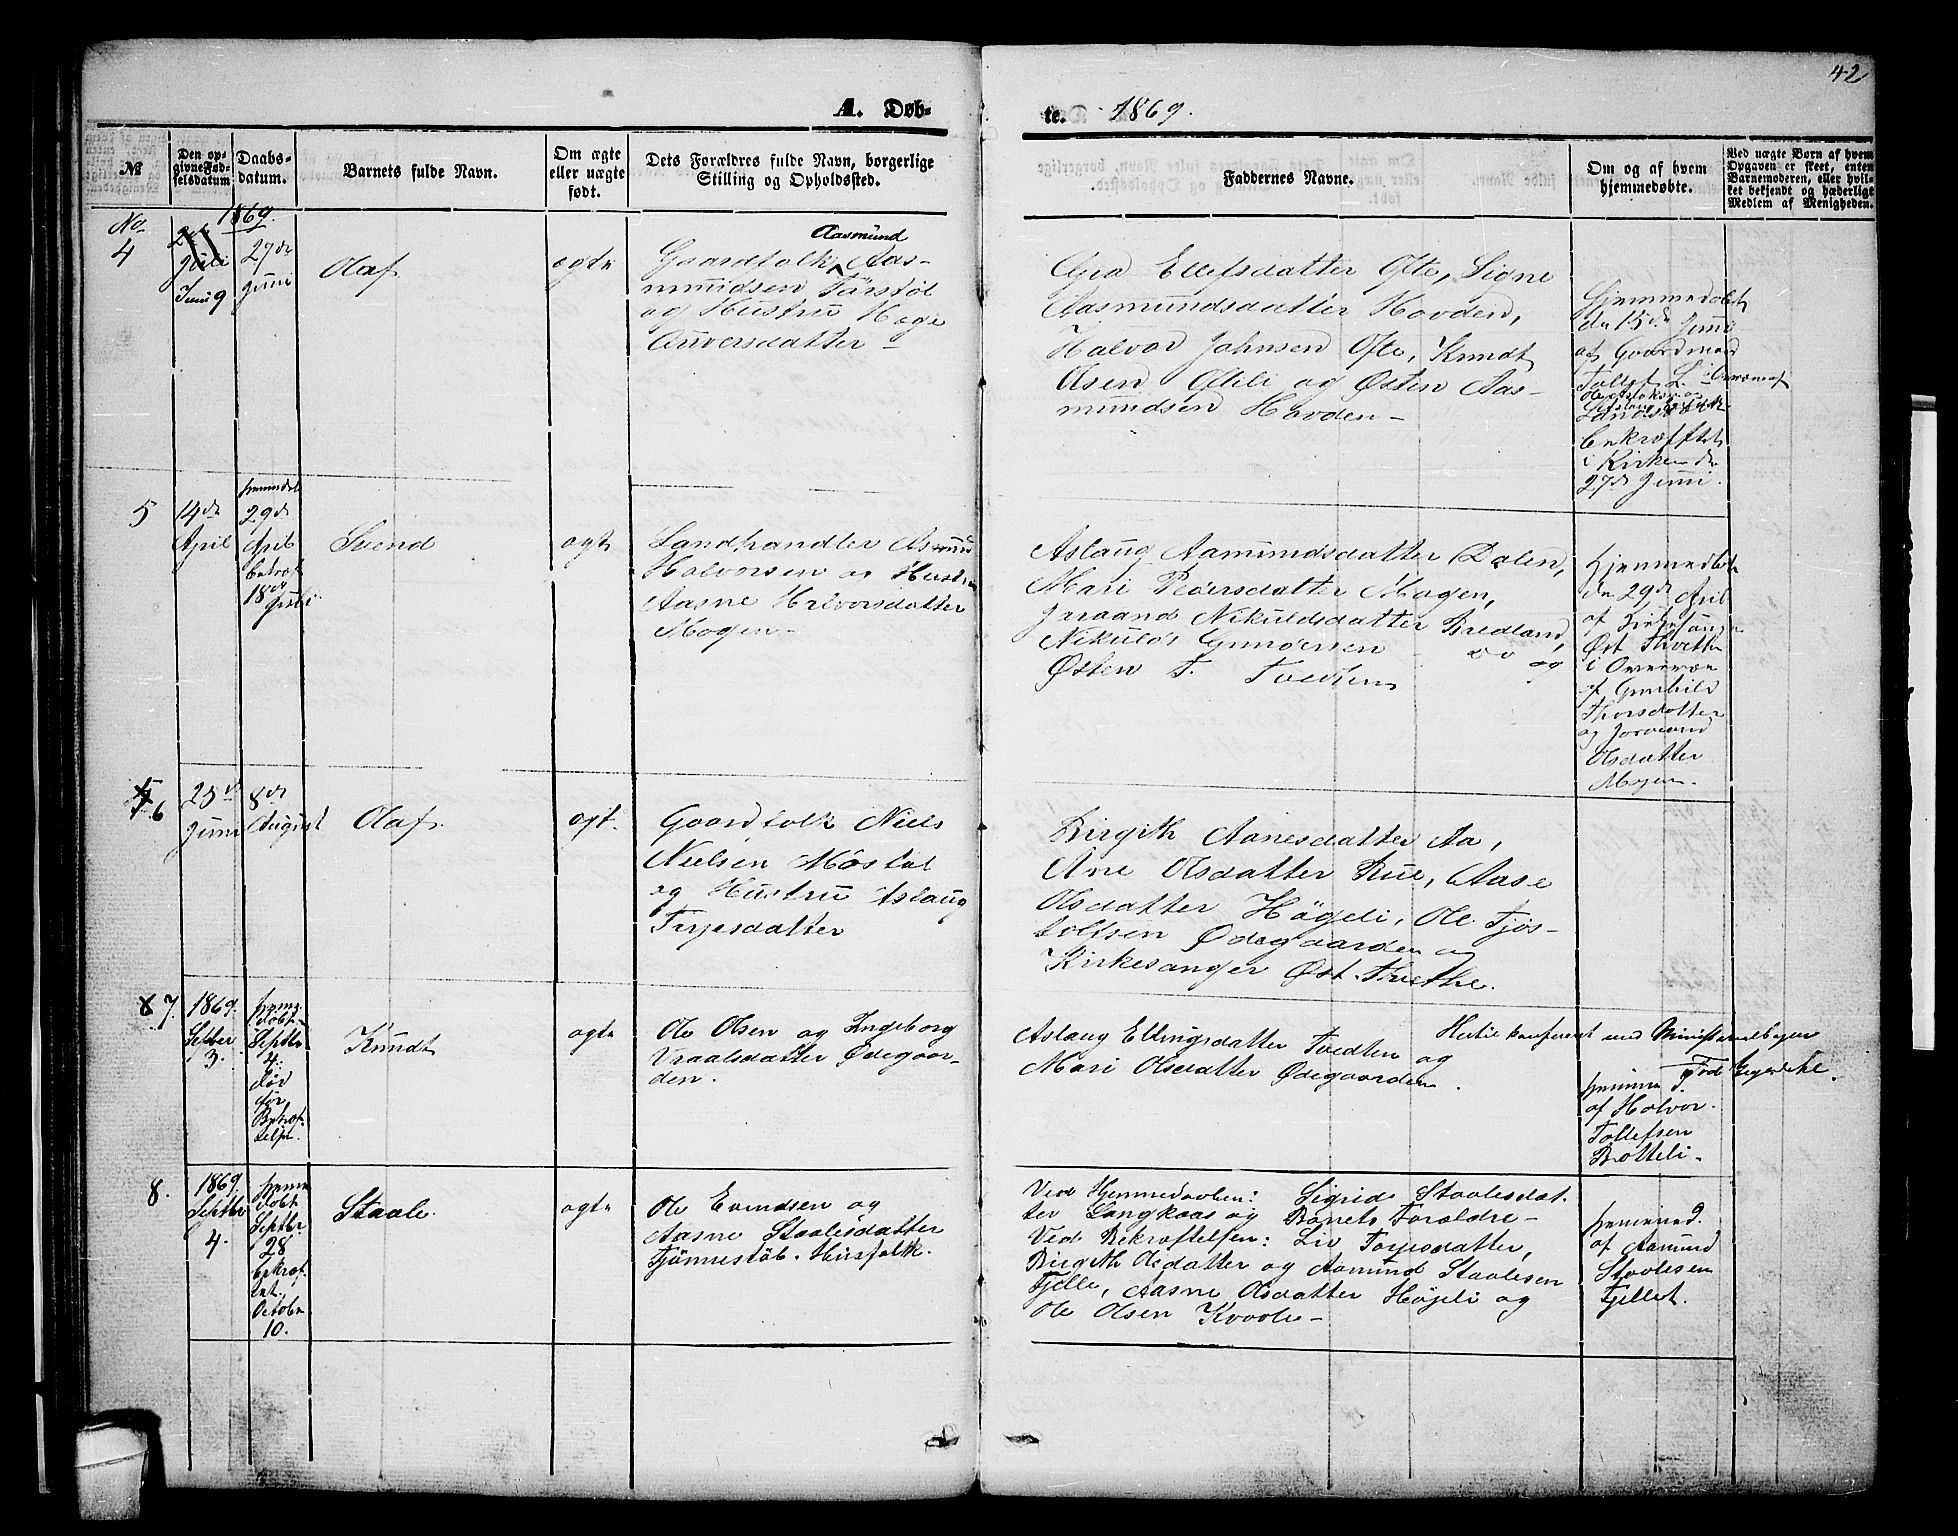 42
A. Døb-
te. 1869.
№
Den op-
givne Fød-
selsdatum
Daabs-
datum.
Barnets fulde Navn.
Om ægte
eller uægte
født.
Dets Forældres fulde Navn, borgerlige
Stilling og Opholdssted.
Faddernes Navne.
Om og af hvem
hjemmedøbte.
Ved uægte Børn af hvem
Opgaven er skeet, enten
Barnemoderen, eller hvil-
ket bekjendt og hæderligt
Medlem af Menigheden.
No
4
1869.
Juli
Juni 9
27de
Juni
Olaf
ægte
Aasmund
Gaardfolk Aas-
mundsen
og Hustru Hæge
Anversdatter -
Gro Ellefsdatter Ofte, Signe
Aasmundsdatter Hovden,
Halvor Johnsen Ofte, Knudt
Asen Ofteli og Østen Aas-
mundsen Hovden -
Hjemmedøbt
den 15de Juni
af Gaardmand
Tollef L.
Bekræftet
i Kirken den
27de Juni.
5
14de
April
hjemmedøbt
29de
April
Bekræft
18de
Svend
ægte
Landhandler Asmund
Halvorsen og Hustru
Aasne Halvorsdatter
Mogen -
Aslaug Aamundsdatter Dalen,
Mari Pedersdatter Mogen,
Jøraand Nikulsdatter Bredland,
Nikuls Gunnersen do og
Østen T. Tvedten
Hjemmedøbt
den 29de April
af Kirkesanger
Øst Thvetten
i Overvær
af Gunhild
Thorsdatter
og Joraand
Olsdatter
Mogen.
6
25de
Juni
8de
August
Olaf
ægt.
Gaardfolk Niels
Nielsen Møstøl
og Hustru Aslaug
Terjesdatter
Birgith Aanesdatter Aa,
Ane Olsdatter Rue, Aase
Olsdatter Högeli, Ole Tjös-
tolfsen Ødegaarden og
Kirkesanger Øst. Thvetten.
7.
1869.
Septber
3.
hjemme-
døbt
Septbr
4.
død
før
Bekræf-
telsen.
Knudt
ægte
Ole Olsen og Ingeborg
Vraalsdatter Ødegaar-
den.
Aslaug Ellingsdatter Tvedten og
Mari Olsdatter Ødegaarden.
Hertil konfereret med Ministerialbogen
Tod
hjemmed.
af Halvor
Tollefsen
Botteli -
8.
1869.
Septbr
4.
hjemme
døbt
Septbr
28
bekræf-
tet
October
10.
Staale.
ægte
Ole Evindsen og
Aasne Staalesdatter
Tjönnestöb. Husfolk.
Ved Hjemmedaaben: Sigrid Staalesdat-
ter Langkaas og Barnets Forældre -
Ved Bekræftelsen: Liv Torjesdatter,
Birgith Olsdatter og Aamund Staalesen
Fjelle, Aasne Olsdatter Højeli og
Ole Olsen Kvaale -
hjemmed.
af Aamund
Staalesen
Fjellet.